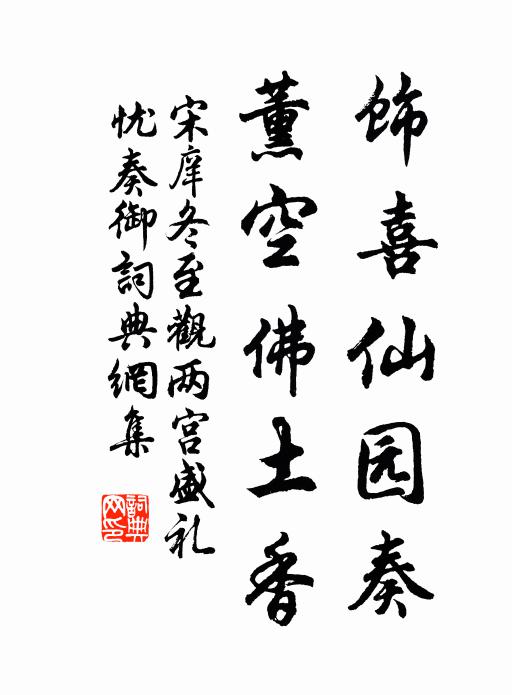 饰喜仙园奏
薰空佛土香
宋庠冬至觀两宫盛礼
忱奏御詞典網集
詞典
网印